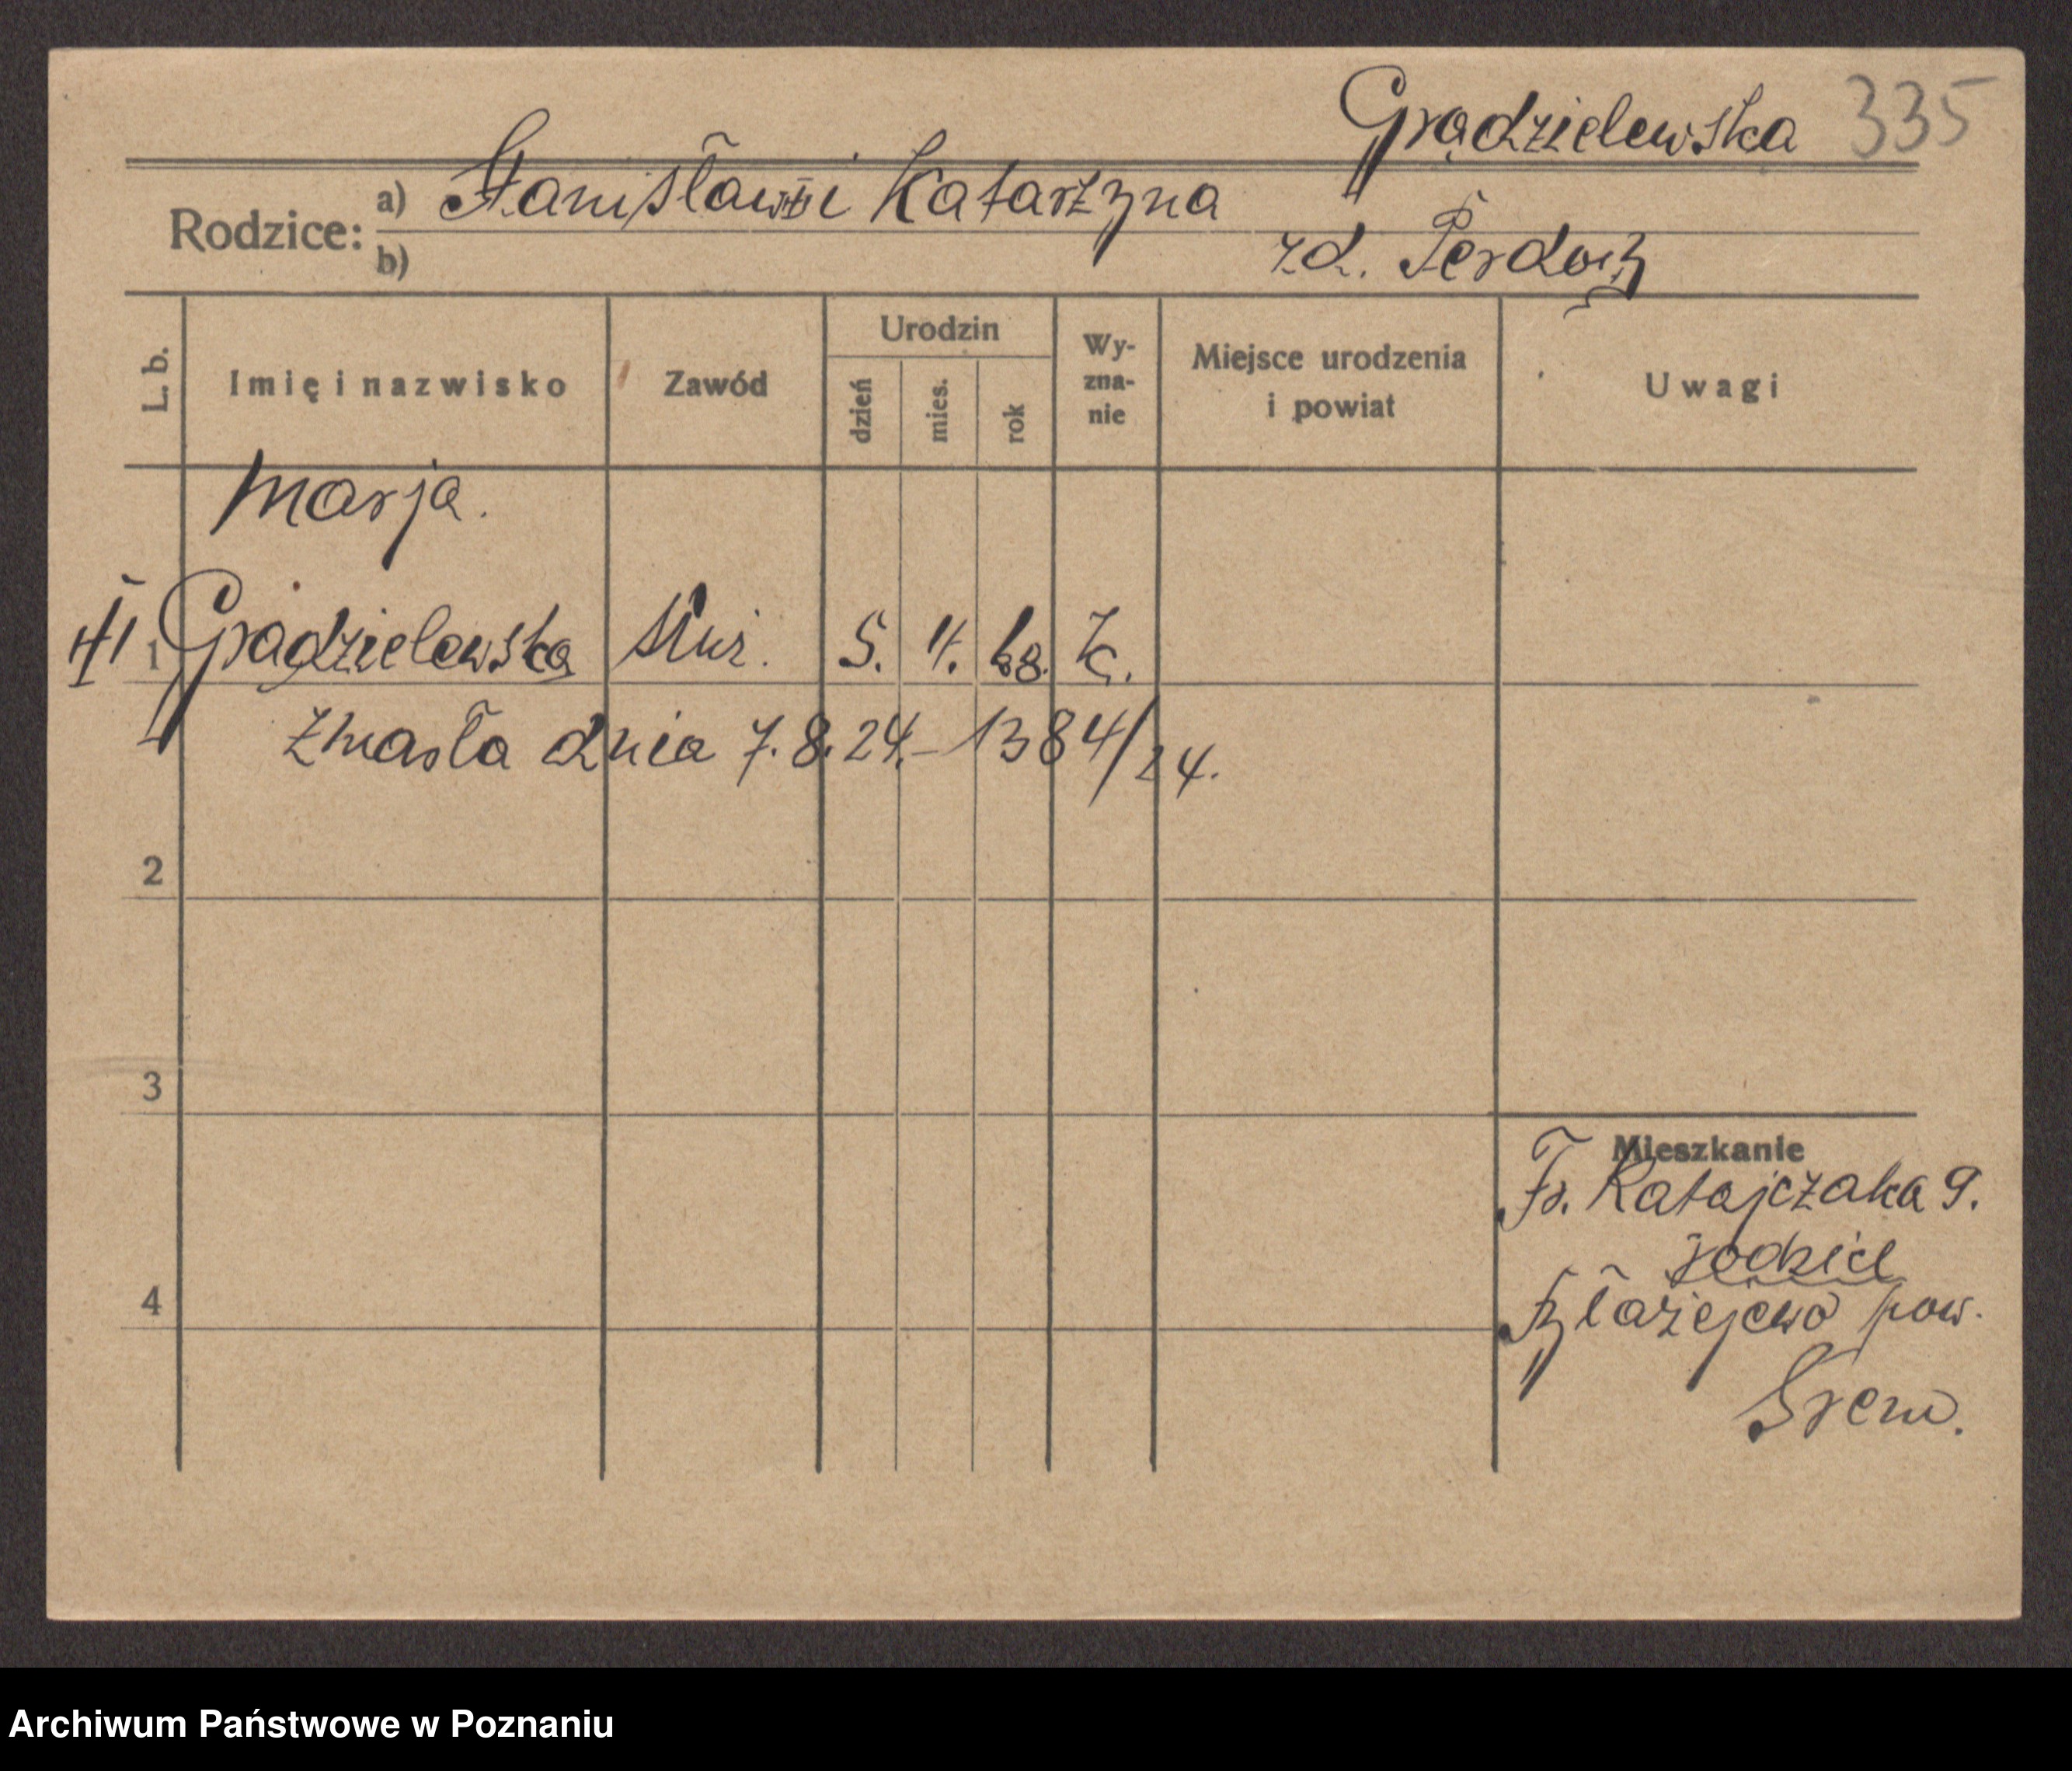 Grądzielewska 335
Rodzice: a) Stanisław i Katarzyna
b) zd. Perdoch
L. b. Imię i nazwisko Zawód Urodzin dzień mies. rok Wy-zna-nie Miejsce urodzenia i powiat Uwagi
Marja.
1 Grądzielewska Służ. 5. 4. k.
Zmarła dnia 7.8.24.- 1384/24.
2
3
Mieszkanie
Fr. Ratajczaka 9.
rodzice
4
Błażejewo pow.
Śrem.
Archiwum Państwowe w Poznaniu